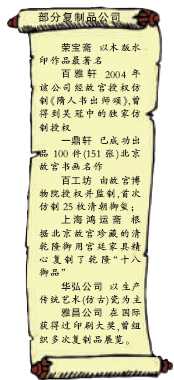 部分复制品公司
荣宝斋 以木版水
印作品最著名
百雅轩 2004年
该公司经故宫授权仿
制《隋人书出师颂》,曾
得到吴冠中的独家仿
制授权
一鼎轩 已成功出
品100件(151张)北京
故宫书画名作
百工坊 由故宫博
物院授权并监制,首次
仿制25枚清朝御玺;
上海鸿运斋 根
据北京故宫珍藏的清
乾隆御用宫廷家具精
心复制了乾隆“十八
御品”
华弘公司 以生产
传统艺术(仿古)瓷为主
雅昌公司 在国际
获得过印刷大奖,曾组
织多次复制品展览。